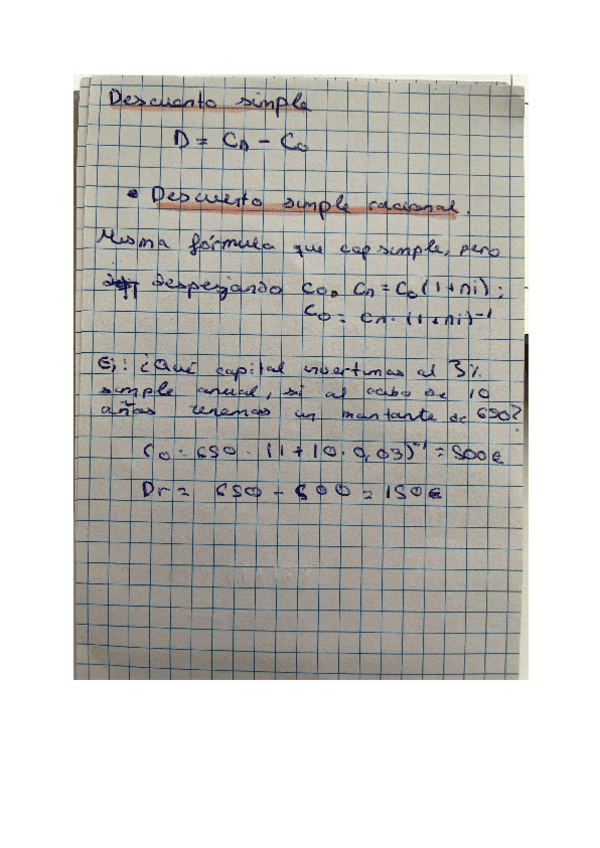 Descuento simple
D = Cn - Co
• Descuento simple racional.
Misma fórmula que cap simple, pero
despejando Co. Cn = Co (1+ni);
Co = Cn · (1+ni)⁻¹
Ej: ¿Qué capital invertimos al 3%
simple anual, si al cabo de 10
años tenemos un montante de 650?
Co = 650 · (1 + 10 · 0,03)⁻¹ = 500€
Dr = 650 - 500 = 150€